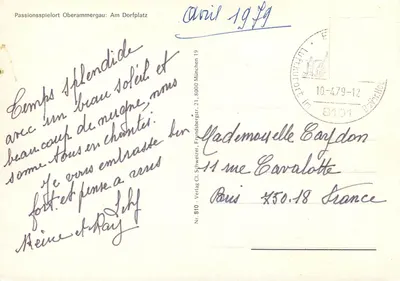 Passionsspielort Oberammergau: Am Dorfplatz
Avril 1979
Temps splendide
avec un beau soleil et
beaucoup de neige, nous
somme tous enchantés.
Je vous embrasse bien
fort et pense a vous
Reine et Ray
Nr. 810 Verlag Ch. Schweizer, 8000 München 19
10-4.79-12
8101
Mademoiselle Caydon
11 rue Cavalotte
Paris 75018 France